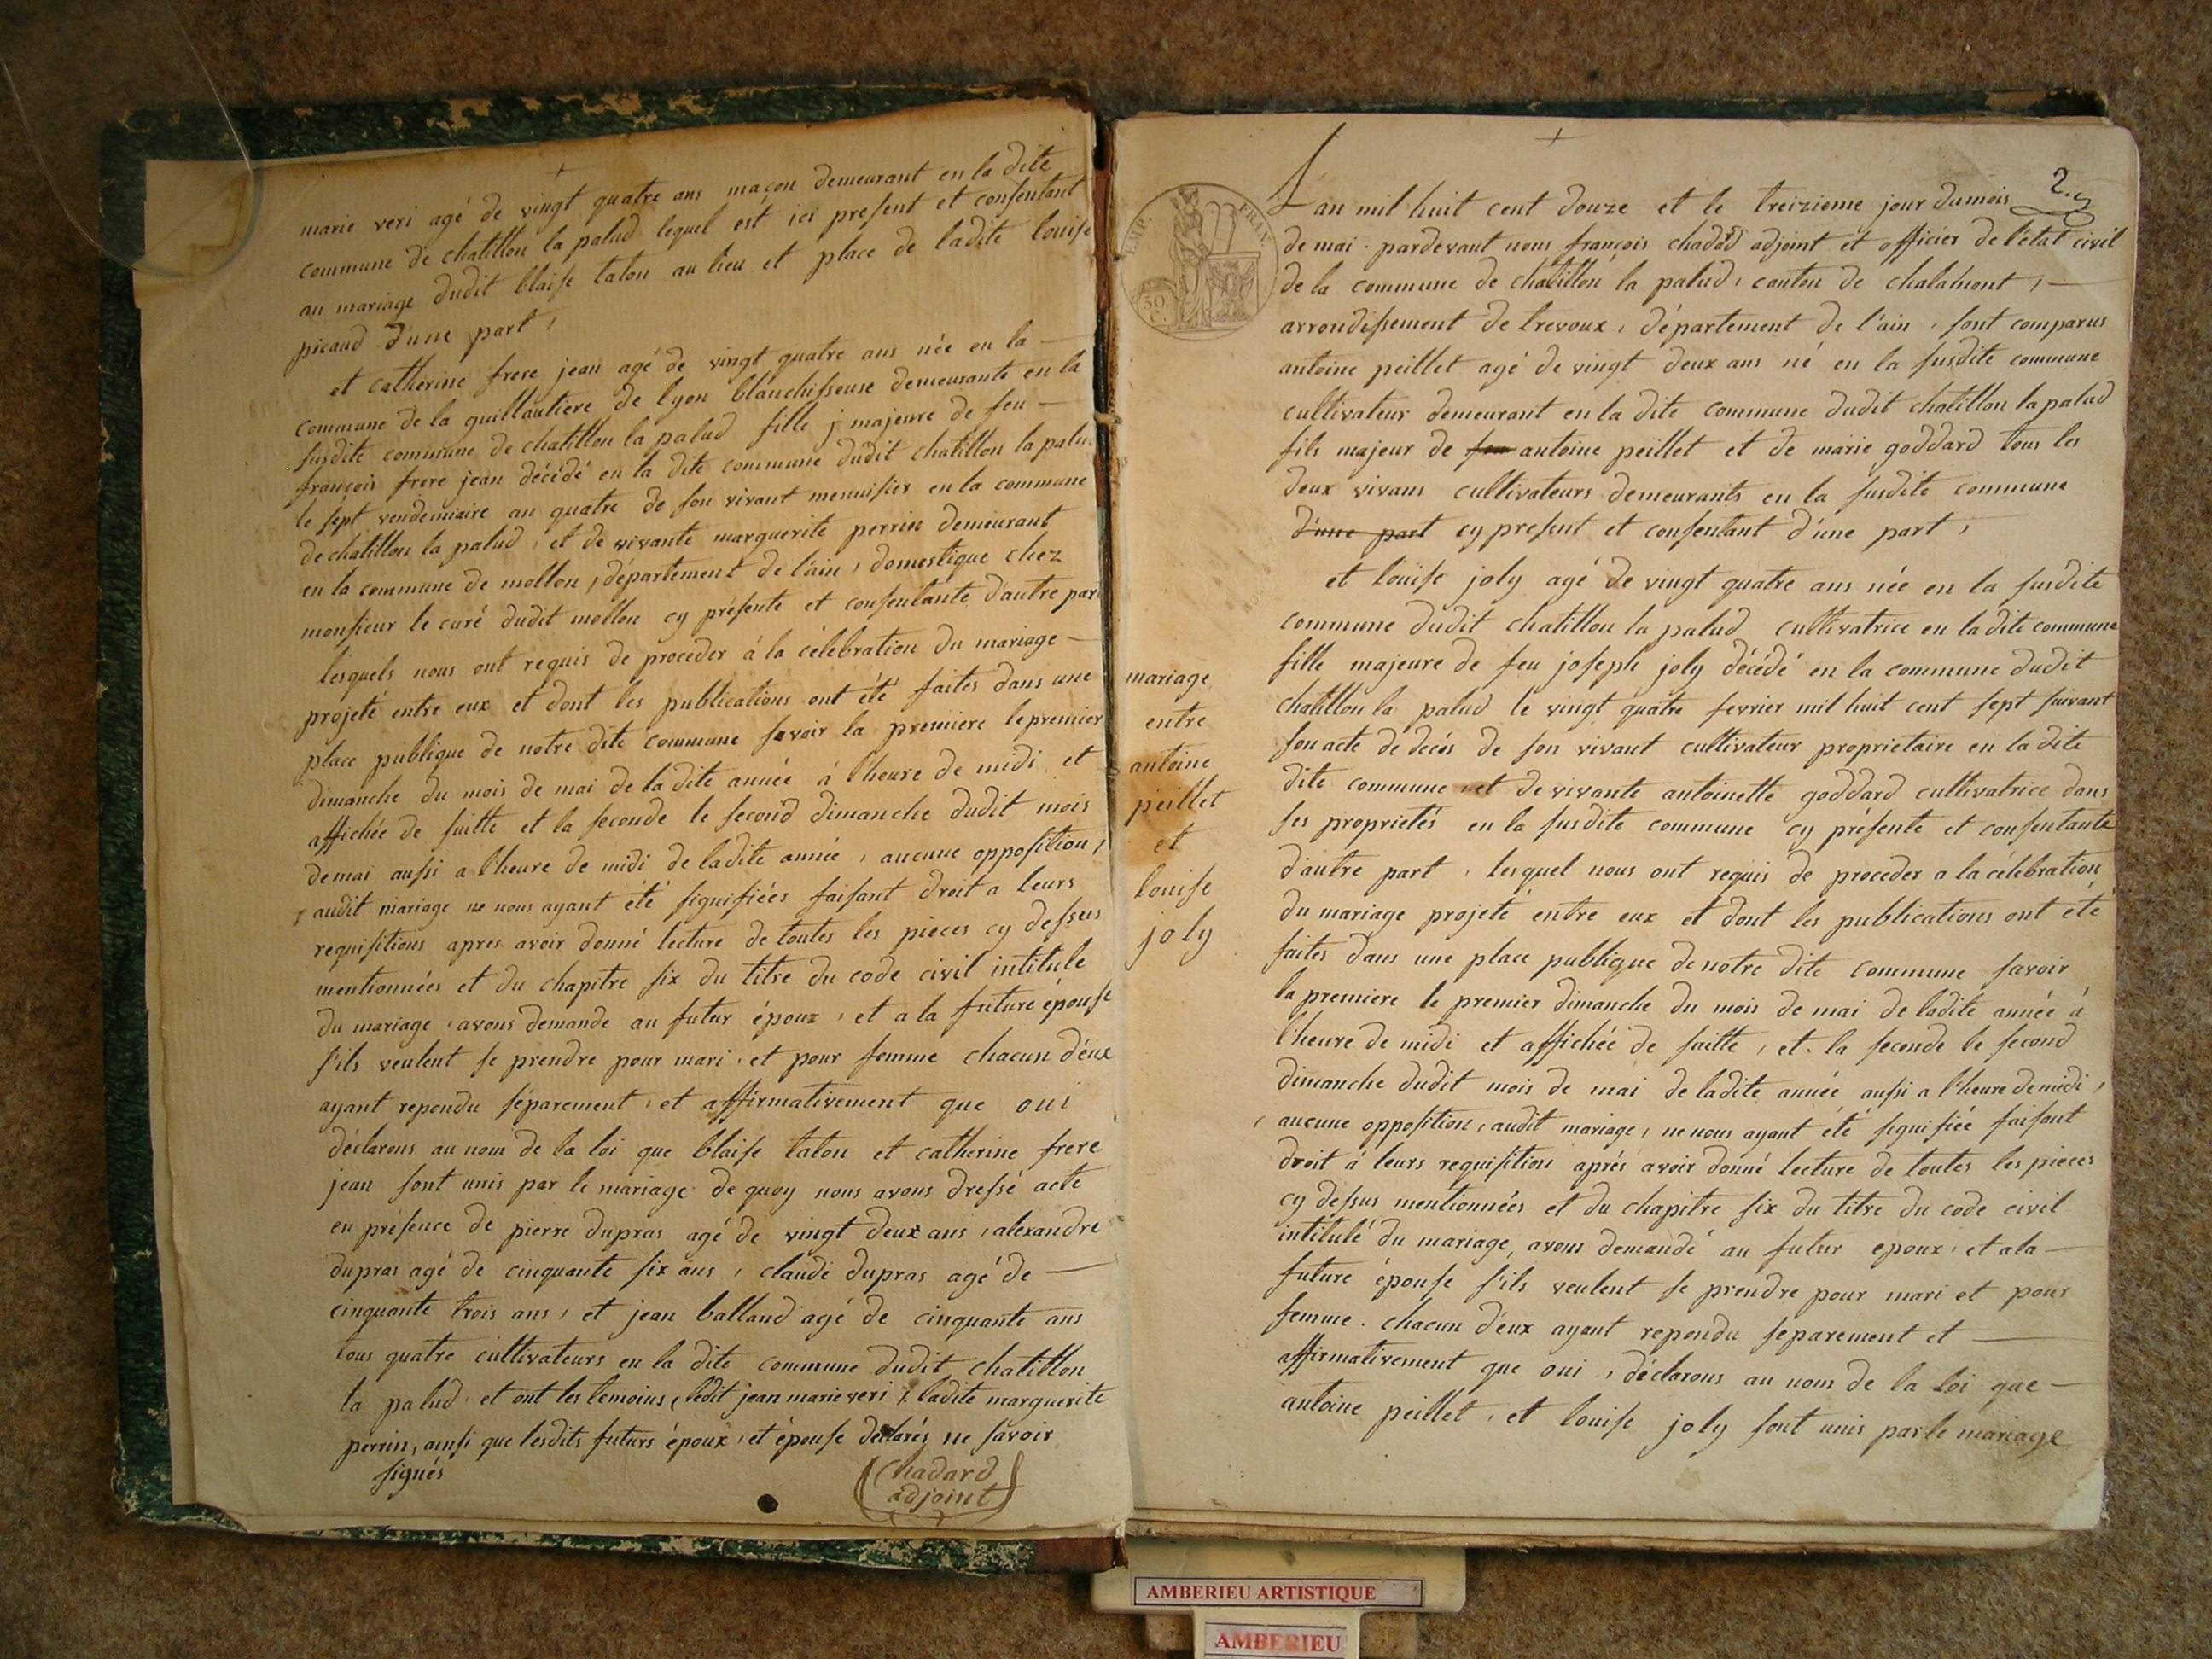 marie veri agé de vingt quatre ans maçon demeurant en la dite
commune de chatillon la palud lequel est ici present et consentant
au mariage dudit blaise talon au lieu et place de ladite louise
picaud d'une part,
et catherine frere jean agé de vingt quatre ans née en la
commune de la guillautiere de lyon blanchisseuse demeurante en la
susdite commune de chatillon la palud fille majeure de feu
françois frere jean décédé en la dite commune dudit chatillon la palu
le sept vendemiaire an quatre de son vivant menuisier en la commune
de chatillon la palud, et de vivante marguerite perrin demeurant
en la commune de mollon, département de l'ain, domestique chez
monsieur le curé dudit mollon cy présente et consentante d'autre par
lesquels nous ont requis de proceder à la célebration du mariage
projeté entre eux et dont les publications ont été faites dans une
place publique de notre dite commune savoir la premiere le premier
dimanche du mois de mai de la dite année à l'heure de midi et
affichée de suitte et la seconde le second dimanche dudit mois
de mai aussi a l'heure de midi de ladite année, aucune opposition,
audit mariage ne nous ayant été signifiées faisant droit a leurs
requisitions apres avoir donné lecture de toutes les pieces cy dessus
mentionnées et du chapitre six du titre du code civil intitule
du mariage, avons demande au futur époux, et a la future épouse
s'ils veulent se prendre pour mari, et pour femme chacun d'eux
ayant repondu séparement, et affirmativement que oui
déclarons au nom de la loi que blaise talon et catherine frere
jean sont unis par le mariage de quoy nous avons dressé acte
en présence de pierre dupras agé de vingt deux ans, alexandre
dupras agé de cinquante six ans, claude dupras agé de
cinquante trois ans, et jean balland agé de cinquante ans
tous quatre cultivateurs en la dite commune dudit chatillon
la palud, et ont les temoins, ledit jean marie veri, ladite marguerite
perrin, ainsi que lesdits futurs époux, et épouse déclarés ne savoir
signés
Chadard
adjoint
2.
EMP. FRAN.
50.
C.
L'an mil huit cent douze et le treizieme jour dumois
de mai. pardevant nous françois chadard adjoint et officier de l'état civil
de la commune de chatillon la palud, canton de chalamont,
arrondissement de trevoux, département de l'ain, sont comparus
antoine peillet agé de vingt deux ans né en la susdite commune
cultivateur demeurant en la dite commune dudit chatillon la palud
fils majeur de feu antoine peillet et de marie goddard tous les
deux vivans cultivateurs demeurants en la susdite commune
d'une part cy present et consentant d'une part,
et louise joly agé de vingt quatre ans née en la susdite
commune dudit chatillon la palud cultivatrice en la dite commune
fille majeure de feu joseph joly décédé en la commune dudit
chatillon la palud le vingt quatre fevrier mil huit cent sept suivant
son acte de decés de son vivant cultivateur proprietaire en la dite
dite commune, et de vivante antoinette goddard cultivatrice dans
ses proprietés en la susdite commune cy présente et consentante
d'autre part, lesquel nous ont requis de proceder a la célebration
du mariage projeté entre eux et dont les publications ont été
faites dans une place publique de notre dite commune savoir
la premiere le premier dimanche du mois de mai de ladite année à
l'heure de midi et affichée de suitte, et la seconde le second
dimanche dudit mois de mai de ladite année aussi a l'heure de midi,
aucune opposition, audit mariage, ne nous ayant été signifiée faisant
droit à leurs requisition aprés avoir donné lecture de toutes les pieces
cy dessus mentionnées et du chapitre six du titre du code civil
intitulé du mariage, avons demandé au futur epoux, et a la
future épouse s'ils veulent se prendre pour mari et pour
femme. chacun d'eux ayant repondu separement et
affirmativement que oui, déclarons au nom de la loi que
antoine peillet, et louise joly sont unis par le mariage
mariage
entre
antoine
peillet
et
louise
joly
AMBERIEU ARTISTIQUE
AMBERIEU